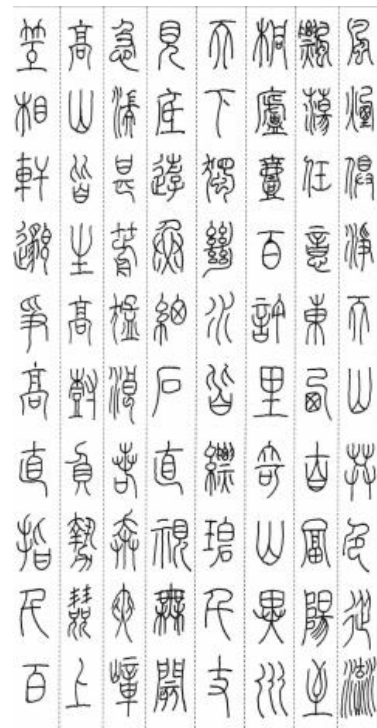 風煙俱淨天山共色從流
飄蕩任意東西自富陽至
桐廬壹百許里奇山異水
天下獨絕水皆縹碧千丈
見底遊魚細石直視無
急湍甚箭猛浪若奔夾嶂
高山皆生高樹負勢競上
互相軒邈爭高直指千百